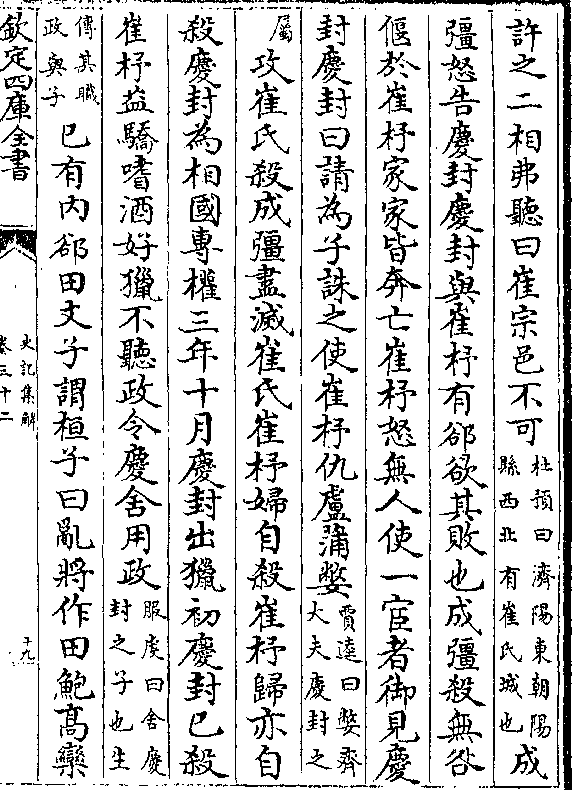 許之二相弗聽曰崔宗邑不可杜預曰濟陽東朝陽縣西北有崔氏城也成
彊怒告慶封慶封與崔杼有郤欲其敗也成彊殺無咎
偃於崔杼家家皆奔亡崔杼怒無人使一宦者御見慶
封慶封曰請為子誅之使崔杼仇盧蒲嫳賈逵曰嫳齊大夫慶封之
屬攻崔氏殺成彊盡滅崔氏崔杼婦自殺崔杼歸亦自
殺慶封為相國專權三年十月慶封出獵初慶封已殺
崔杼益驕嗜酒好獵不聽政令慶舍用政服虔曰舍慶封之子也生
傳其職政與子已有内郤田文子謂桓子曰亂將作田鮑高欒
欽定四庫全書
史記集解
卷三十二
十九